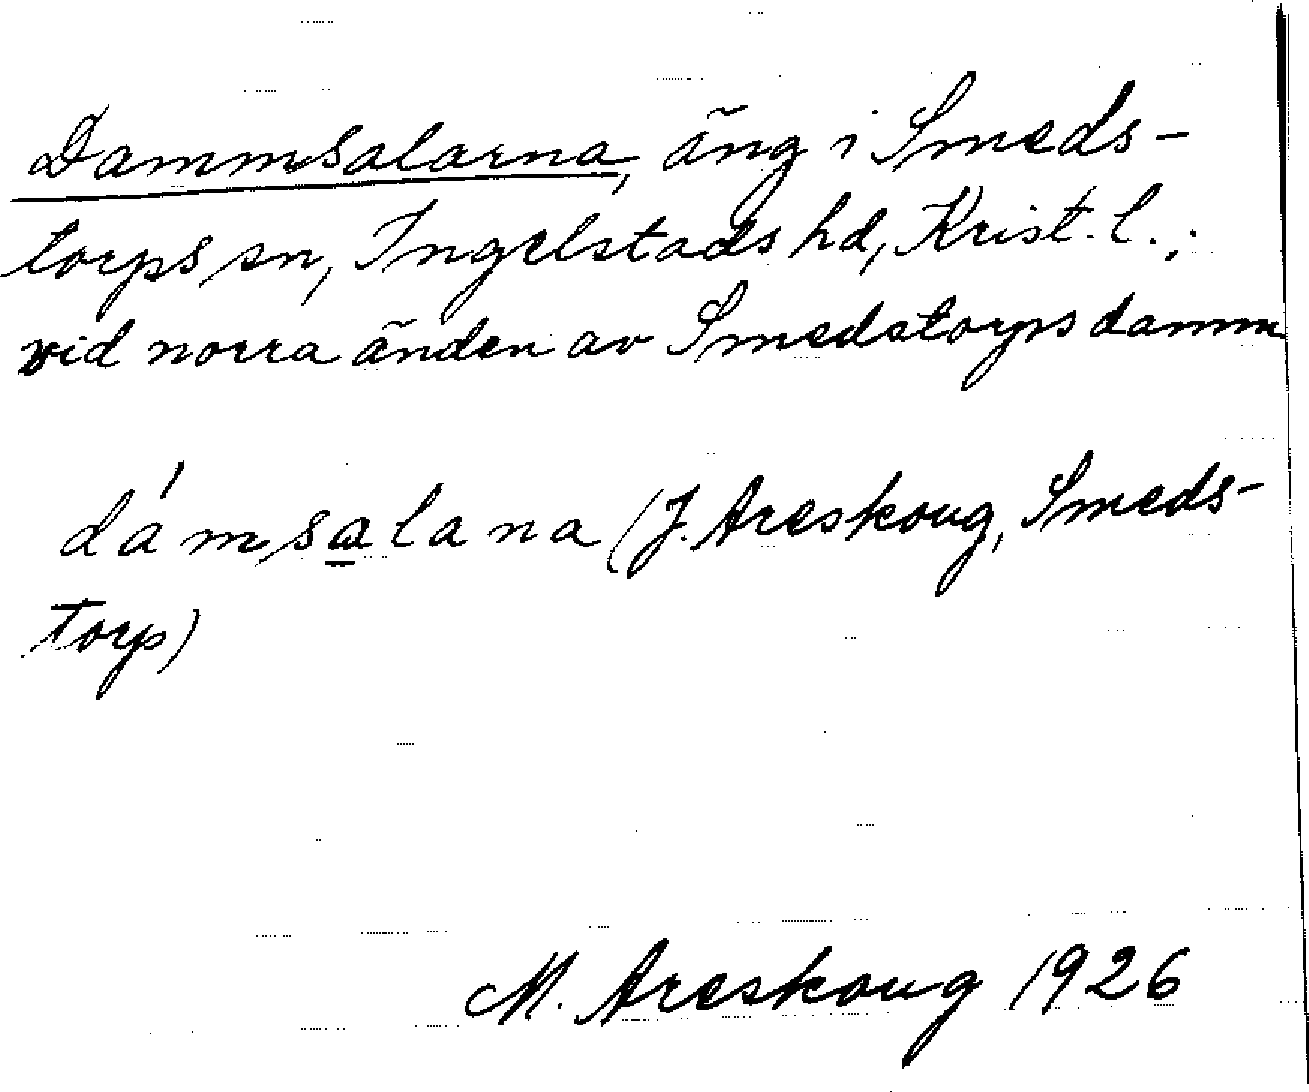 Dammsalarna, äng i Smeds-
torps sn, Ingelstads hd, Krist. l.;
vid norra änden av Smedstorps damm
dámsa̲lana (J. Areskoug, Smeds-
torp)
M. Areskoug 1926